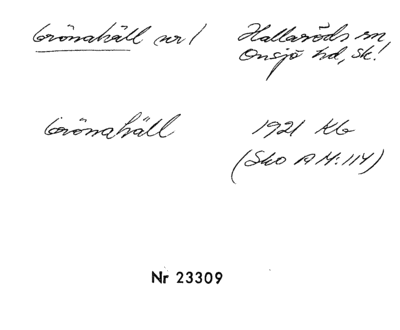 Grönahäll nr 1 Hallaröds sn,
Onsjö hd, Sk!
Grönahäll 1921 Kb
(Sko A M:114)
Nr 23309